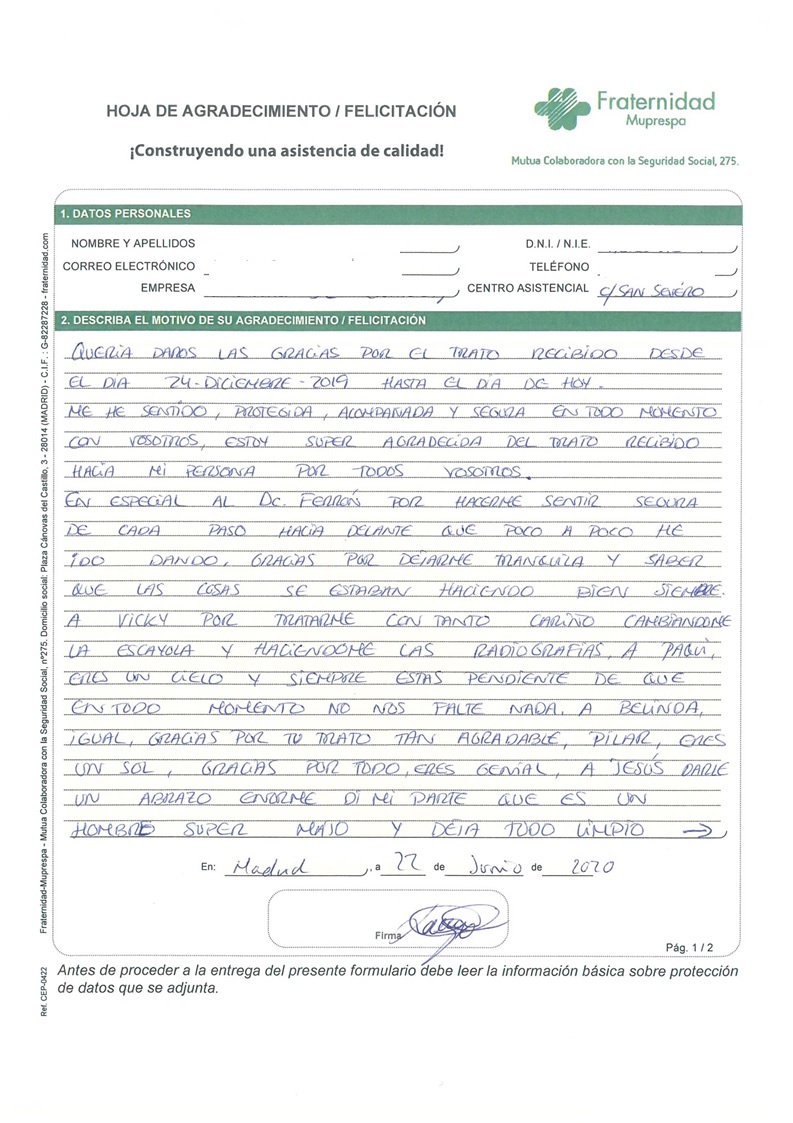 HOJA DE AGRADECIMIENTO / FELICITACIÓN
¡Construyendo una asistencia de calidad!
Fraternidad
Muprespa
Mutua Colaboradora con la Seguridad Social, 275.
1. DATOS PERSONALES
NOMBRE Y APELLIDOS
D.N.I. / N.I.E.
CORREO ELECTRÓNICO
TELÉFONO
EMPRESA
CENTRO ASISTENCIAL C/ SAN SEVERO
2. DESCRIBA EL MOTIVO DE SU AGRADECIMIENTO / FELICITACIÓN
QUERIA DAROS LAS GRACIAS POR EL TRATO RECIBIDO DESDE
EL DIA 24-DICIEMBRE-2019 HASTA EL DIA DE HOY.
ME HE SENTIDO, PROTEGIDA, ACOMPAÑADA Y SEGURA EN TODO MOMENTO
CON VOSOTROS, ESTOY SUPER AGRADECIDA DEL TRATO RECIBIDO
HACIA MI PERSONA POR TODOS VOSOTROS.
EN ESPECIAL AL DC. FERRON POR HACERME SENTIR SEGURA
DE CADA PASO HACIA DELANTE QUE POCO A POCO HE
IDO DANDO, GRACIAS POR DEJARME TRANQUILA Y SABER
QUE LAS COSAS SE ESTABAN HACIENDO BIEN SIEMPRE.
A VICKY POR TRATARME CON TANTO CARIÑO CAMBIANDOME
LA ESCAYOLA Y HACIENDOME LAS RADIOGRAFIAS, A PAQUI,
ERES UN CIELO Y SIEMPRE ESTAS PENDIENTE DE QUE
EN TODO MOMENTO NO NOS FALTE NADA. A BELINDA,
IGUAL, GRACIAS POR TU TRATO TAN AGRADABLE, PILAR, ERES
UN SOL, GRACIAS POR TODO, ERES GENIAL, A JESÚS DARLE
UN ABRAZO ENORME DI MI PARTE QUE ES UN
HOMBRE SUPER MAJO Y DEJA TODO LIMPIO →
En: Madrid, a 22 de Junio de 2020
Firma
Pág. 1 / 2
Antes de proceder a la entrega del presente formulario debe leer la información básica sobre protección
de datos que se adjunta.
Fraternidad-Muprespa - Mutua Colaboradora con la Seguridad Social, nº275. Domicilio social: Plaza Cánovas del Castillo, 3 - 28014 (MADRID) - C.I.F. : G-82287228 - fraternidad.com
Ref. CEP-0422